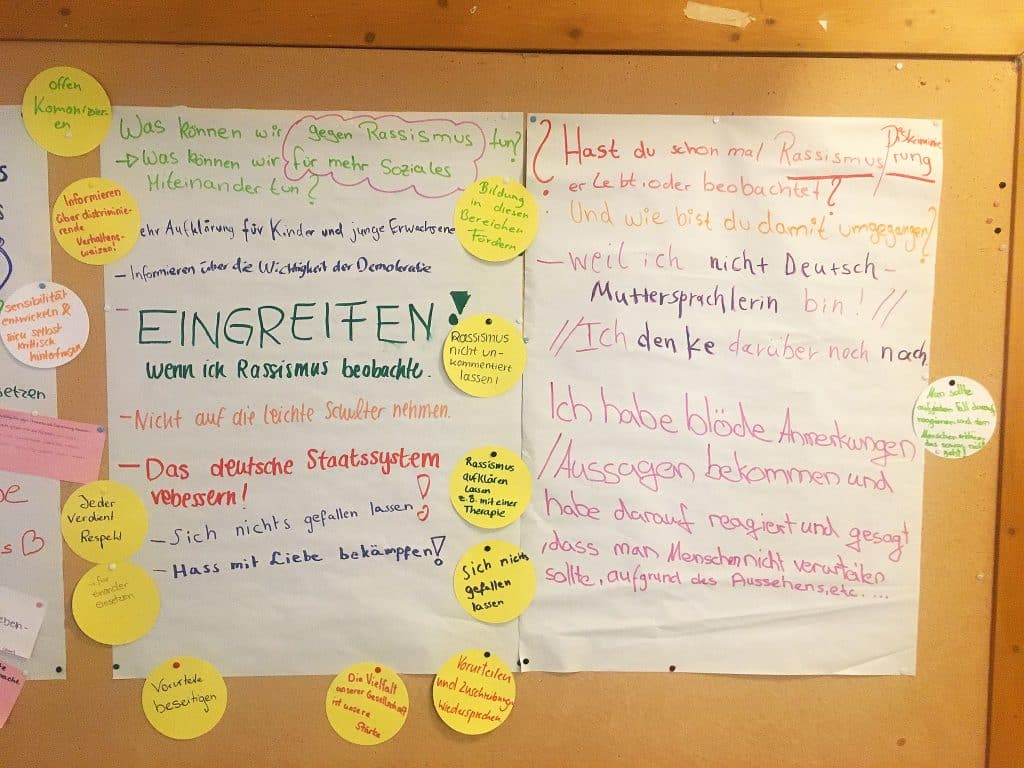 offen
Komonizier-
en
Informieren
über diskriminie-
rende
Verhaltens-
weisen!
sensibilität
entwickeln &
selbst
kritisch
hinterfragen
setzen
Jeder
Verdient
Respekt
für
einander
einsetzen
Was können wir gegen Rassismus tun?
→ Was können wir für mehr Soziales
Miteinander tun?
ehr Aufklärung für Kinder und junge Erwachsene
- Informieren über die Wichtigkeit der Demokratie
- EINGREIFEN!
wenn ich Rassismus beobachte.
- Nicht auf die leichte Schulter nehmen.
- Das deutsche Staatssystem
vebessern!
- Sich nichts gefallen lassen!
- Hass mit Liebe bekämpfen!
Bildung
in diesen
Bereichen
Fördern
Rassismus
nicht un-
kommentiert
lassen!
Rassismus
aufklären
lassen
z.B. mit einer
Therapie
Sich nichts
gefallen
lassen
Vorurteile
beseitigen
Die Vielfalt
unserer Gesellschaft
ist unsere
Stärke
Vorurteilen
und Zuschreibungen
Wiedersprechen
? Hast du schon mal Rassismus/Diskriminie
rung
erlebt, oder beobachtet?
Und wie bist du damit umgegangen?
- weil ich nicht Deutsch-
Muttersprachlerin bin! //
// Ich denke darüber noch nach
Ich habe blöde Anmerkungen
/Aussagen bekommen und
habe darauf reagiert und gesagt
, dass man Menschen nicht verurteilen
sollte, aufgrund des Aussehens, etc. ...
Man sollte
auf jeden Fall darauf
reagieren und den
Menschen erklären
das sowas nicht
geht!